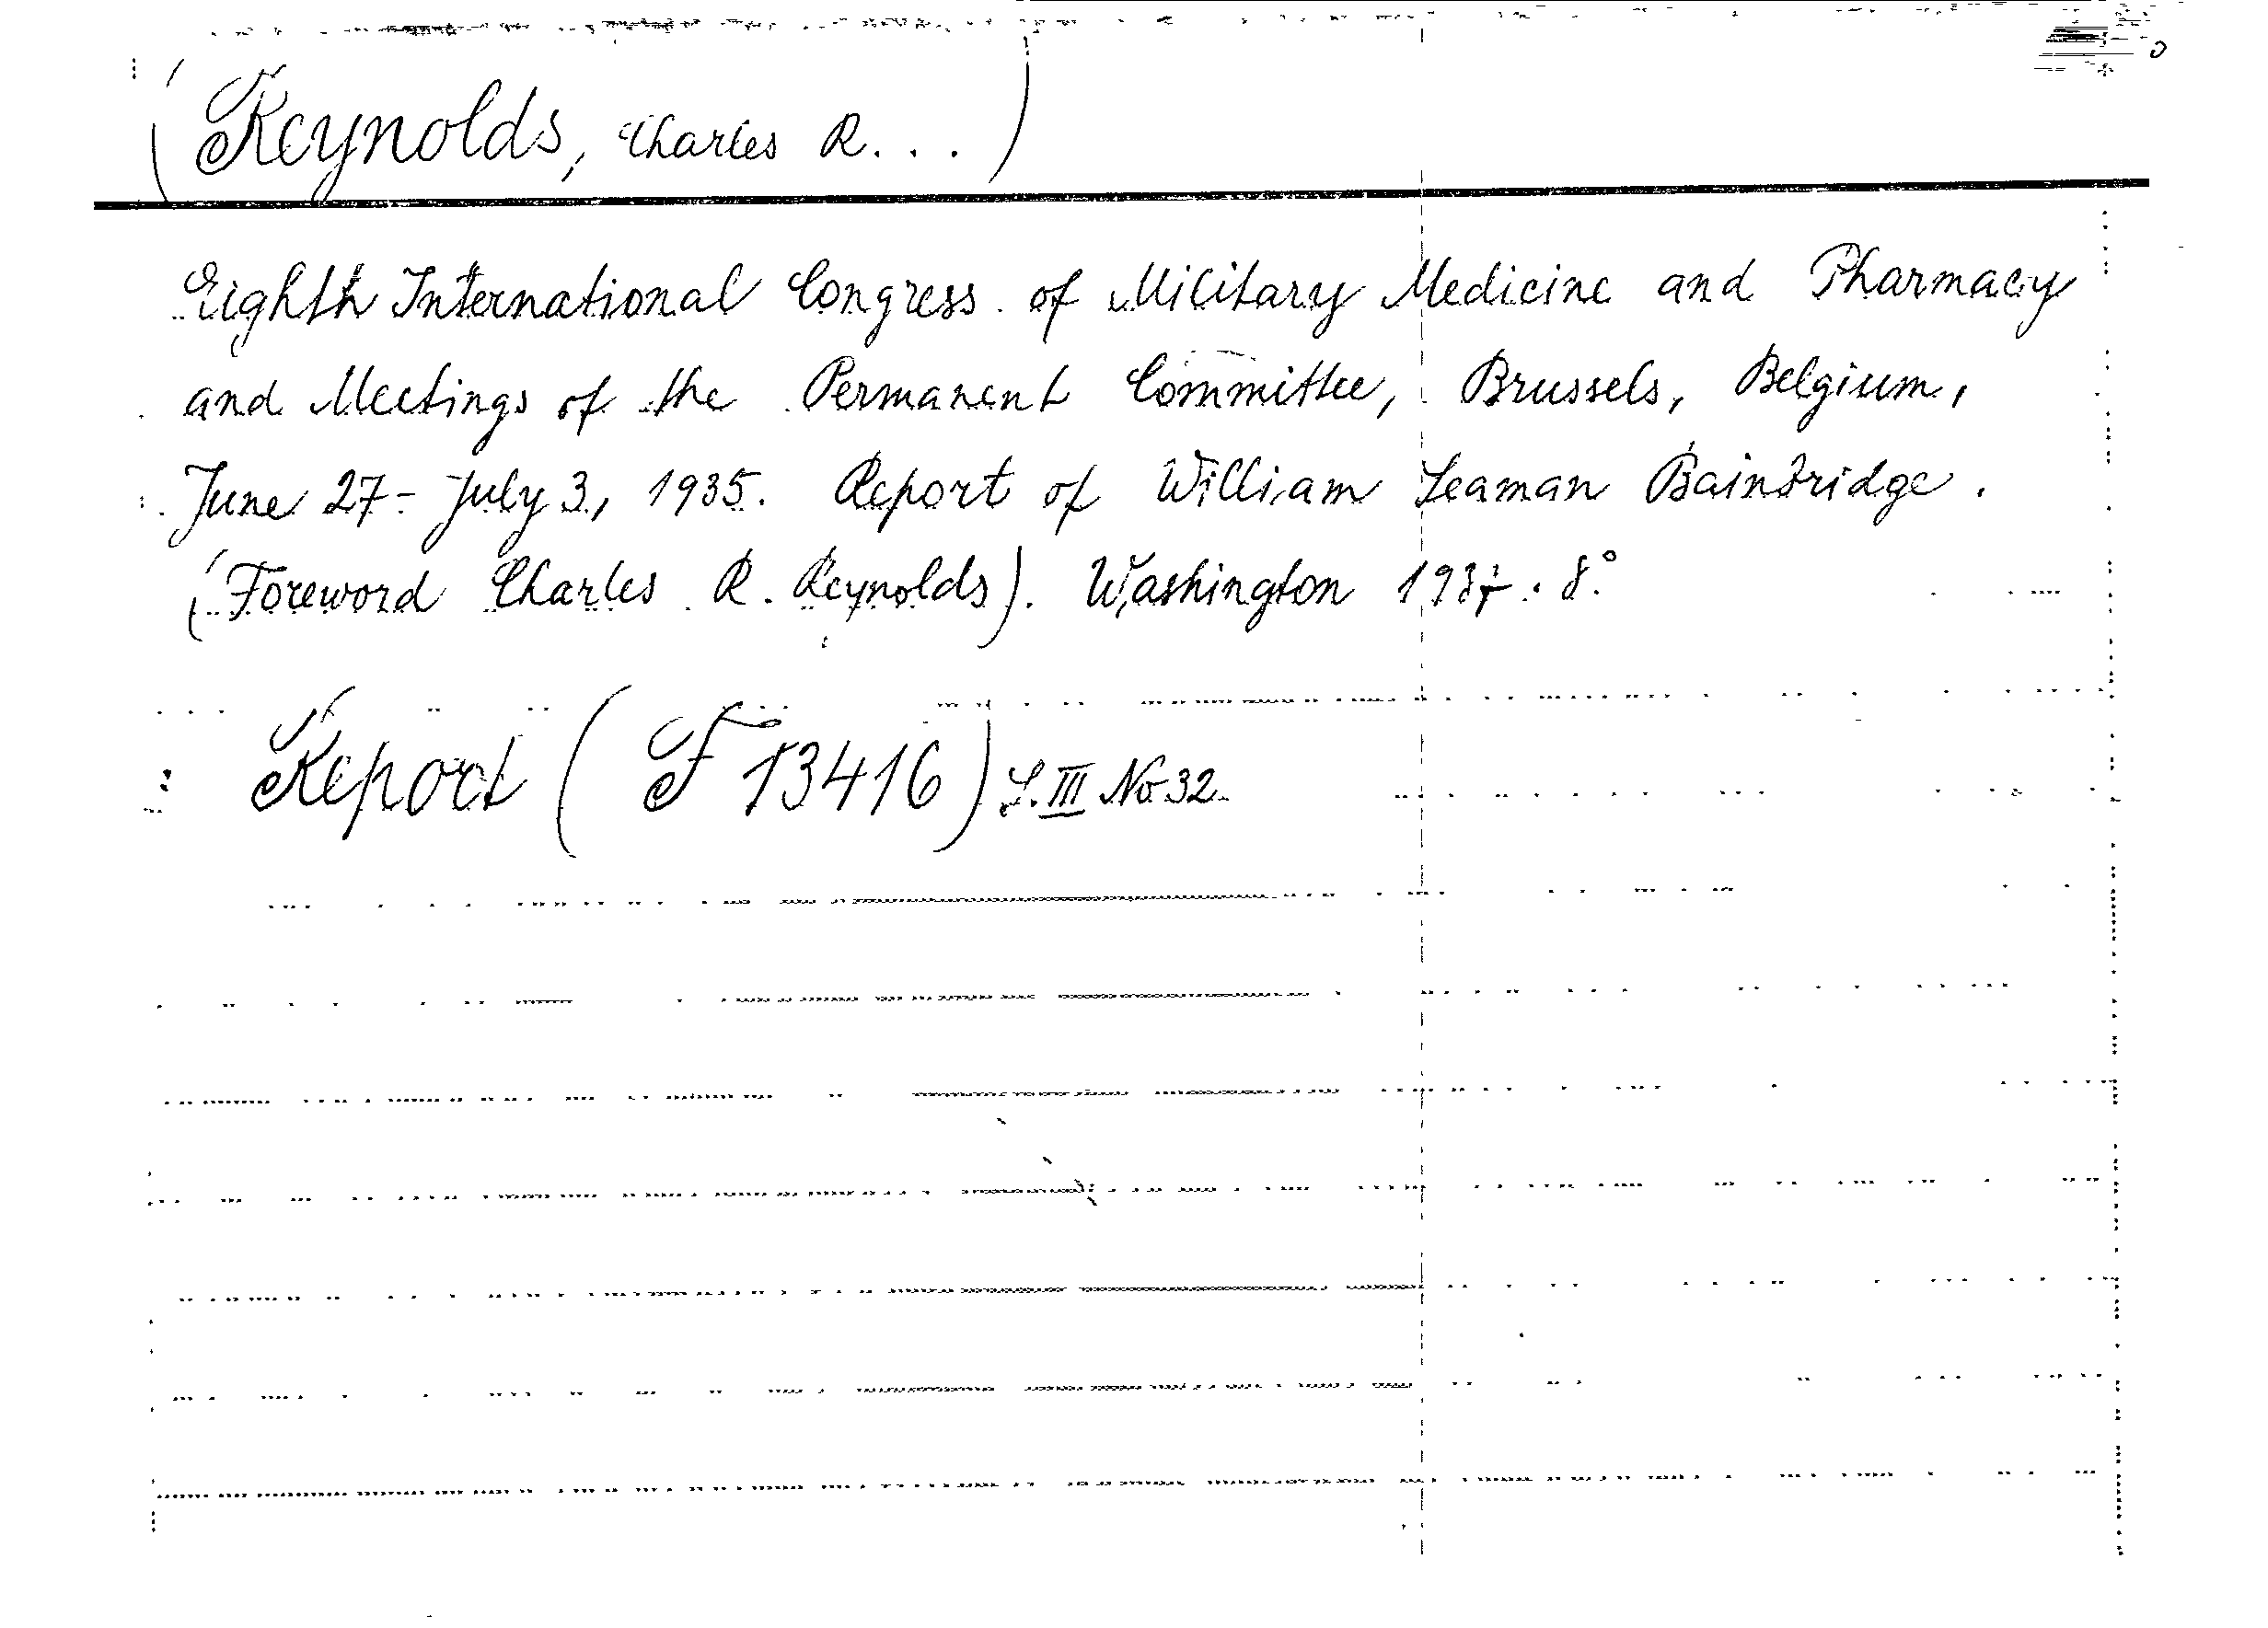 (Reynolds, Charles R. . .)
Eighth International Congress of Military Medicine and Pharmacy
and Meetings of the Permanent Committee, Brussels, Belgium,
June 27 - July 3, 1935. Report of William Seaman Bainbridge.
(Foreword Charles R. Reynolds). Washington 1937. 8°
Report (F 13416) S. III No 32